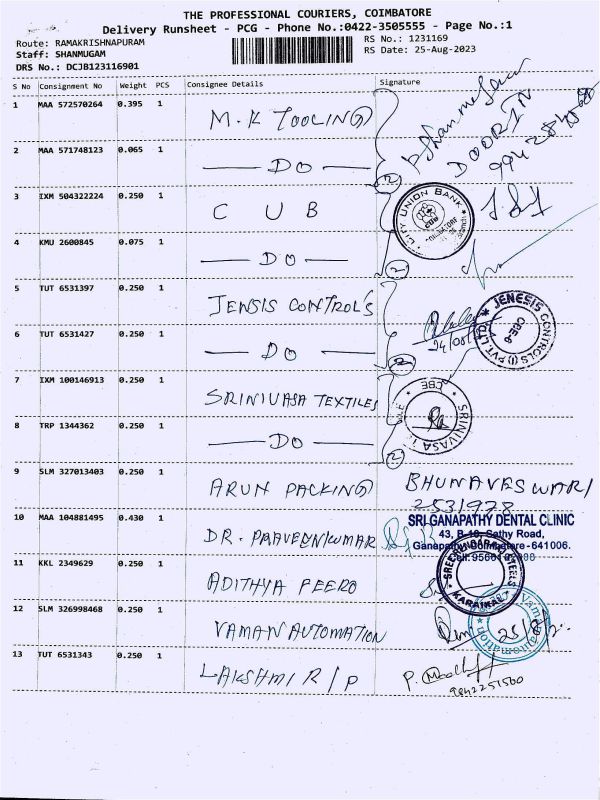 THE PROFESSIONAL COURIERS, COIMBATORE
Delivery Runsheet - PCG - Phone No.:0422-3505555 - Page No.:1
Route: RAMAKRISHNAPURAM
Staff: SHANMUGAM
DRS No.: DCJB123116901
RS No.: 1231169
RS Date: 25-Aug-2023
S No Consignment No Weight PCS Consignee Details Signature
1 MAA 572570264 0.395 1 M.K TOOLING
2 MAA 571748123 0.065 1 DO
2
3 IXM 504322224 0.250 1 C U B
CITY UNION BANK
4 KMU 2600845 0.075 1 DO
2
5 TUT 6531397 0.250 1 JENSIS CONTROL'S
JENESIS CONTROLS (I) PVT. LTD.
CBE-6
6 TUT 6531427 0.250 1 DO
2
7 IXM 100146913 0.250 1 SRINIVASA TEXTILES
CBE
SRINIVASA
8 TRP 1344362 0.250 1 DO
2
9 SLM 327013403 0.250 1 ARUN PACKING BHUNAVESWARI
2531978
10 MAA 104881495 0.430 1 DR. PRAVEENKUMAR
SRI GANAPATHY DENTAL CLINIC
43, B-10, Sathy Road,
Ganapathy Coimbatore - 641006.
11 KKL 2349629 0.250 1 ADITHYA PEERO
12 SLM 326998468 0.250 1 VAMAN AUTOMATION
Vaman automation
13 TUT 6531343 0.250 1 LAKSHMI R/P
9842251500